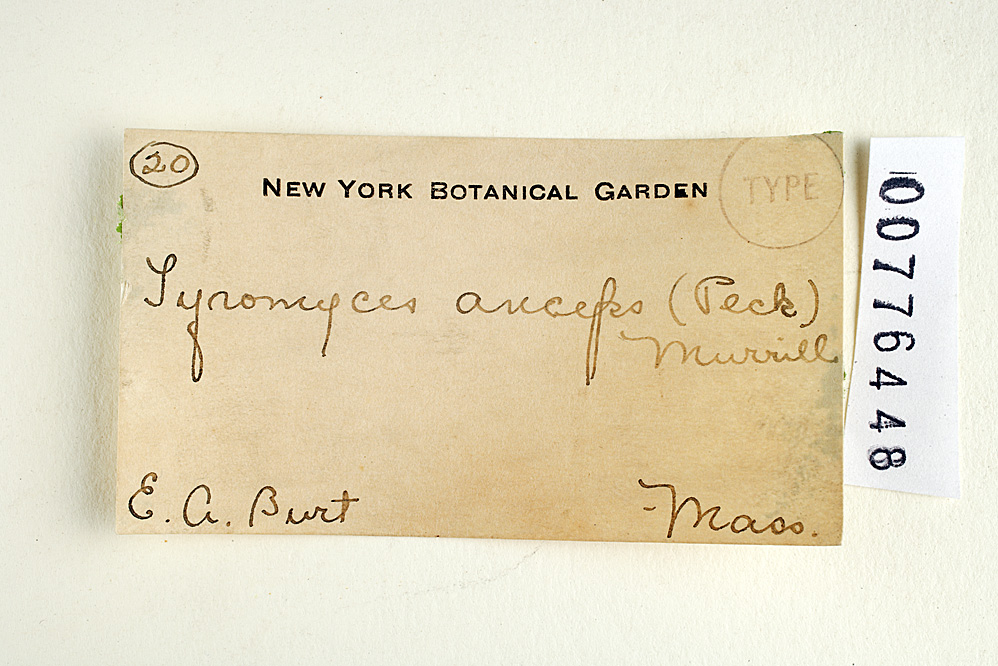 20
NEW YORK BOTANICAL GARDEN
TYPE
Tyromyces anceps (Peck)
Murrill
E. A. Burt
Mass.
00776448